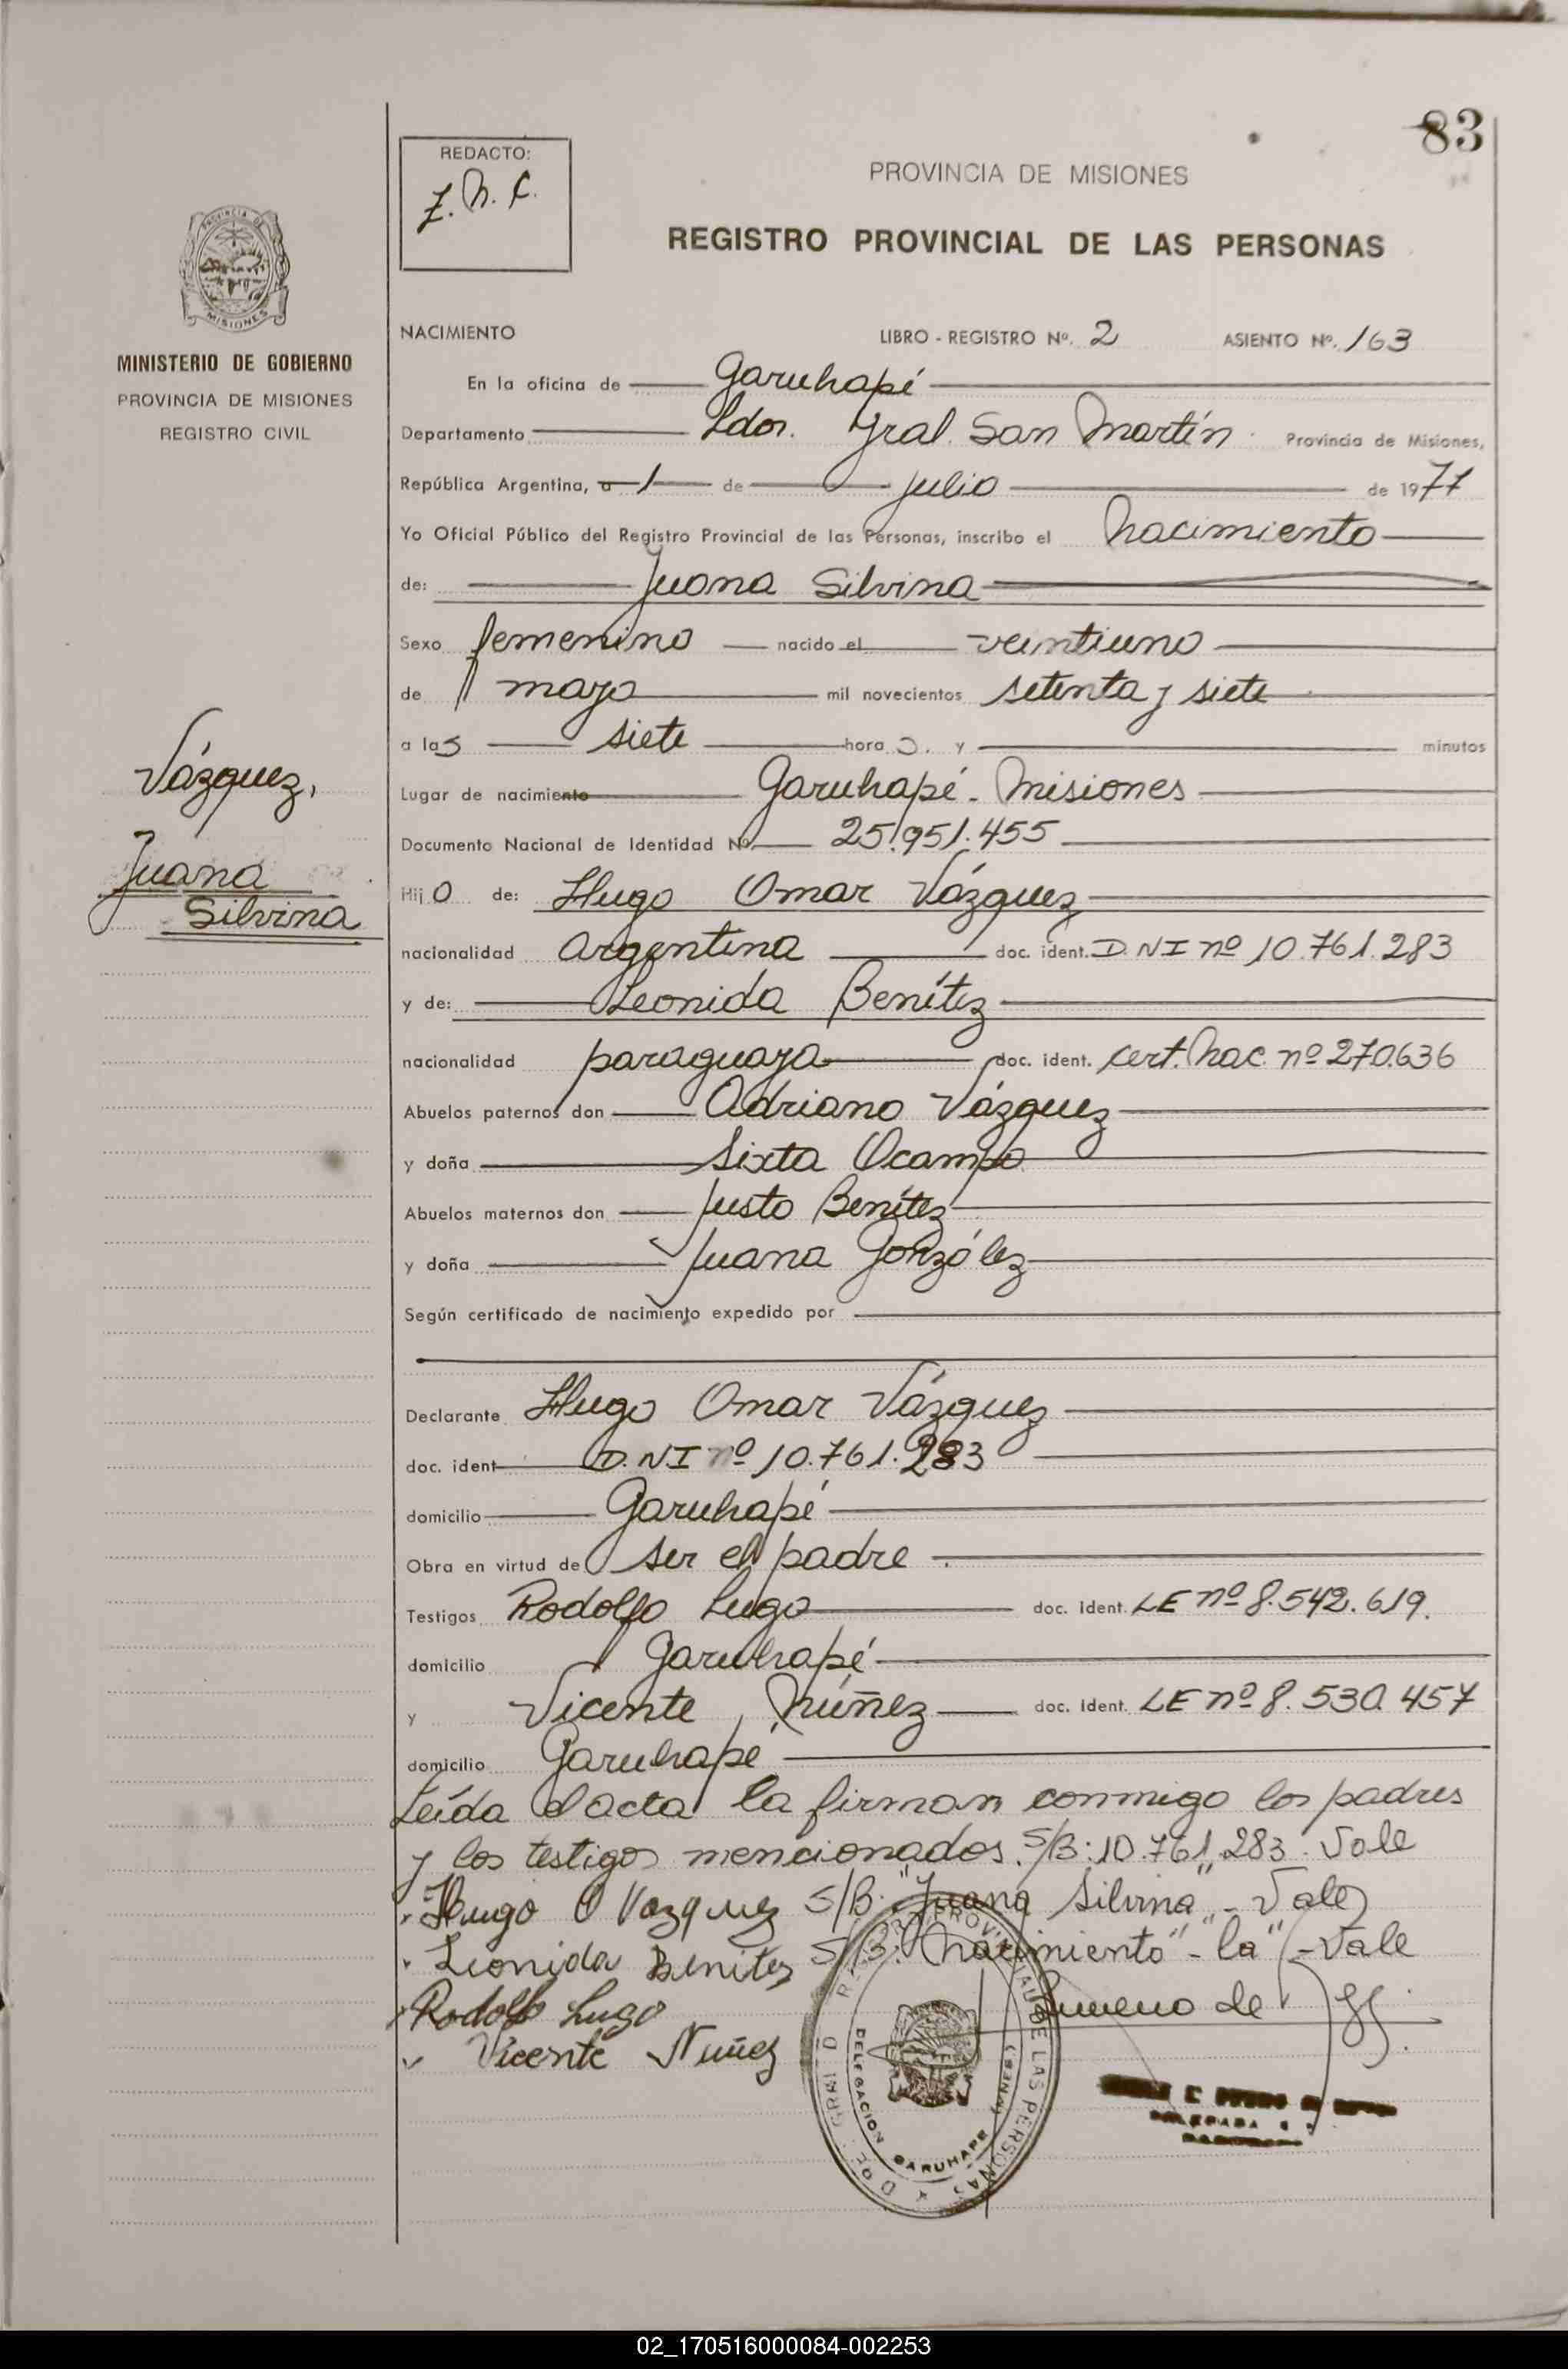 83
REDACTO:
Z. N. C.
PROVINCIA DE MISIONES
REGISTRO PROVINCIAL DE LAS PERSONAS
PROVINCIA DE
MISIONES
MINISTERIO DE GOBIERNO
PROVINCIA DE MISIONES
REGISTRO CIVIL
NACIMIENTO LIBRO - REGISTRO Nº. 2 ASIENTO Nº. 163
En la oficina de Garuhapé
Departamento Ldor. Gral. San Martín Provincia de Misiones,
República Argentina, a 1 de julio de 1977
Yo Oficial Público del Registro Provincial de las Personas, inscribo el nacimiento
de: Juana Silvina
Sexo femenino nacido el veintiuno
de mayo mil novecientos setenta y siete
a las siete hora s. y minutos
Vázquez,
Juana
Silvina
Lugar de nacimiento Garuhapé - Misiones
Documento Nacional de Identidad Nº 25.951.455
Hijo de: Hugo Omar Vázquez
nacionalidad argentina doc. ident. D.NI nº 10.761.283
y de: Leonida Benítez
nacionalidad paraguaya doc. ident. cert. nac. nº 270.636
Abuelos paternos don Adriano Vázquez
y doña Sixta Ocampo
Abuelos maternos don Justo Benítez
y doña Juana González
Según certificado de nacimiento expedido por
Declarante Hugo Omar Vázquez
doc. ident D.NI nº 10.761.283
domicilio Garuhapé
Obra en virtud de ser el padre .
Testigos Rodolfo Lugo doc. ident. LE nº 8.542.619.
domicilio Garuhapé
y Vicente Núñez doc. ident. LE nº 8.530.457
domicilio Garuhapé
Leída el acta la firman conmigo los padres
y los testigos mencionados. S/B: 10.761.283. Vale
Hugo O Vazquez S/B: "Juana Silvina" - Vale
Leonida Benitez S/B: "nacimiento" - "la" - Vale
Rodolfo Lugo
Vicente Nuñez
DELEGACION GARUHAPE
02_170516000084-002253